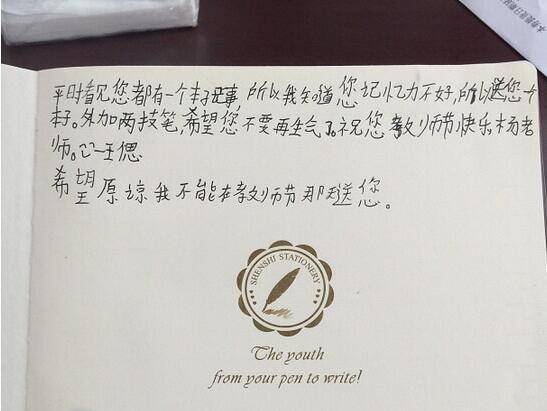 平时看见您都有一个本子记事,所以我知道您记忆力不好,所以送您个
本子。外加两技笔,希望您不要再生气了。祝您教师节快乐杨老
师。
希望原谅我不能在教师节那天送您。
SHENSHI STATIONERY
The youth
from your pen to write!